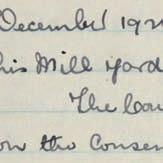 December 192
his Mill Yard
The Cou
on the Consen